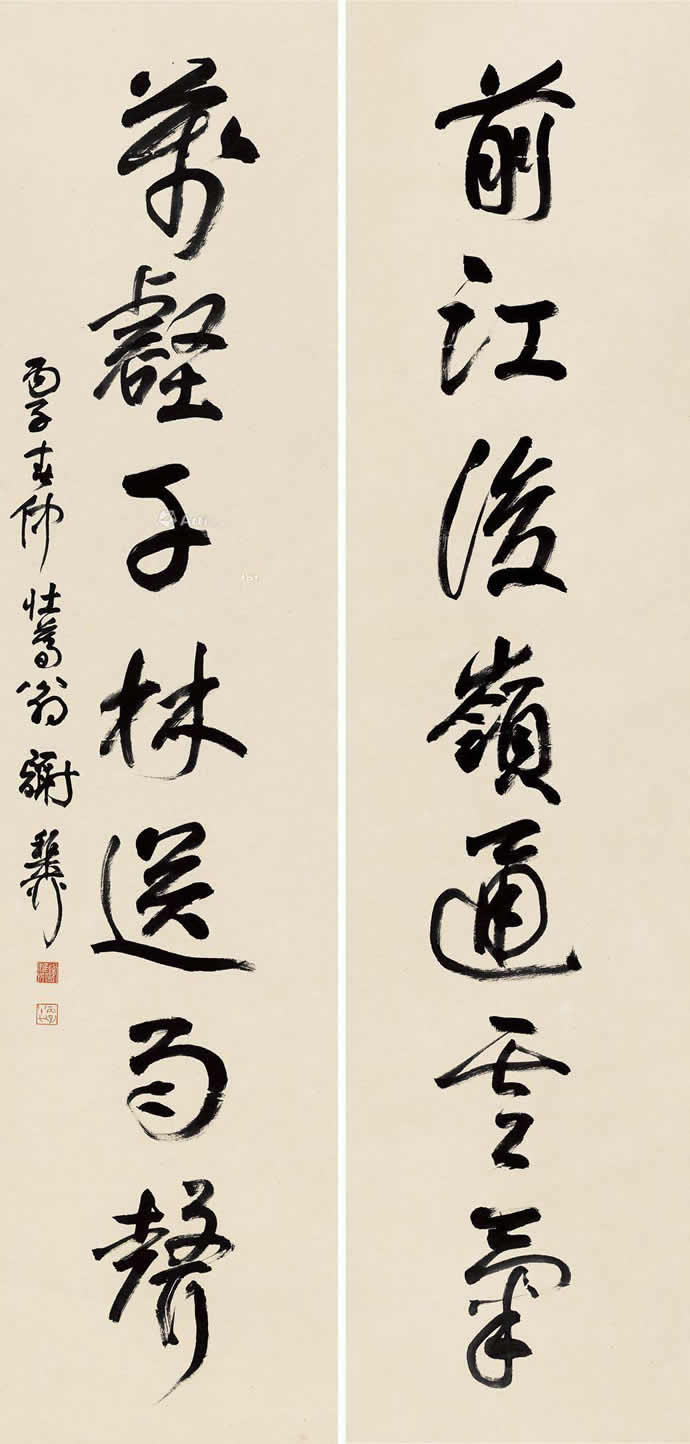 前江後嶺通雲氣
萬壑千林送雨聲
丙子春仲 壯暮翁 謝稚柳